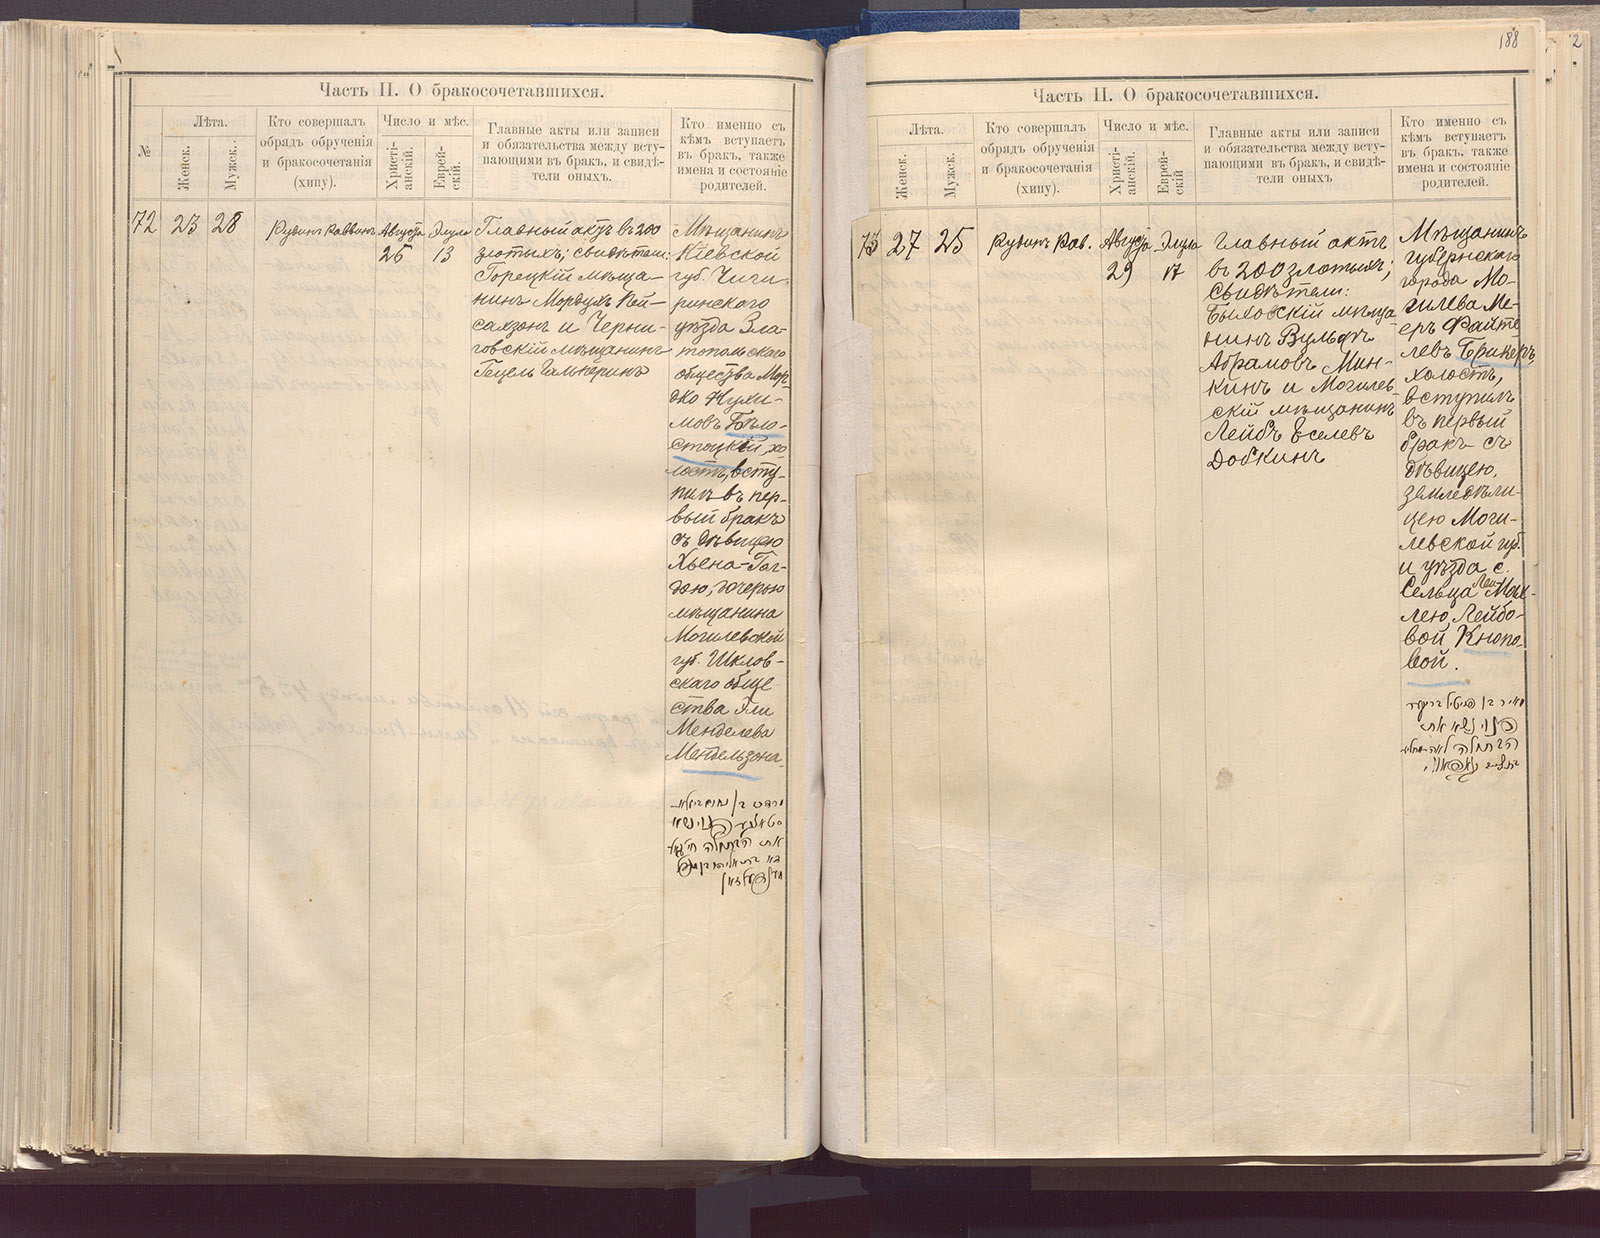 Часть II. О бракосочетавшихся.
№
Лѣта.
Женск.
Мужск.
Кто совершалъ
обрядъ обрученія
и бракосочетанія
(хипу).
Число и мѣс.
Христі-
анскій.
Еврей-
скій.
Главные акты или записи
и обязательства между всту-
пающими въ бракъ, и свидѣ-
тели оныхъ.
Кто именно съ
кѣмъ вступаетъ
въ бракъ, также
имена и состояніе
родителей.
72
23
28
Рубинъ Раввинъ
Августа
26
Элула
13
Главный актъ въ 200
злотыхъ; свидѣтели:
Горецкій мѣща-
нинъ Мордухъ
и Черни-
говскій мѣщанинъ
Гецель Галькеринъ
Мѣщанинъ
Кіевской
губ. Чиги-
ринскаго
уѣзда Зла-
топольскаго
общества Мор-
дко Нухи-
мовъ Бѣло-
стоцкій, хо-
лостъ, всту-
пилъ въ пер-
вый бракъ
съ дѣвицею
Хьена-Гол-
дою, дочерью
мѣщанина
Могилевской
губ. Шклов-
скаго обще-
ства Эли
Менделева
Мендельзона.
188
Часть II. О бракосочетавшихся.
Лѣта.
Женск.
Мужск.
Кто совершалъ
обрядъ обрученія
и бракосочетанія
(хипу).
Число и мѣс.
Христі-
анскій.
Еврей-
скій
Главные акты или записи
и обязательства между всту-
пающими въ бракъ, и свидѣ-
тели оныхъ
Кто именно съ
кѣмъ вступаетъ
въ бракъ, также
имена и состояніе
родителей.
73
27
25
Рубинъ Рав.
Августа
29
Элула
17
Главный актъ
въ 200 злотыхъ;
Свидѣтели:
Быховскій мѣща
нинъ Вульфъ
Абрамовъ Мин-
кинъ и Могилев-
скій мѣщанинъ
Лейбъ Еселевъ
Добкинъ
Мѣщанинъ
губернскаго
города Мо-
гилева Ме-
еръ Файте
левъ Брикеръ,
холостъ,
вступилъ
въ первый
бракъ съ
дѣвицею,
земледѣли-
цею Моги-
левской губ.
и уѣзда с.
Сельца Леи-Мох-
лею, Лейбо-
вой Кнопо-
вой.
מאיר בן פייטיל בריקער
הפנוי נשא את
הבתולה לאה